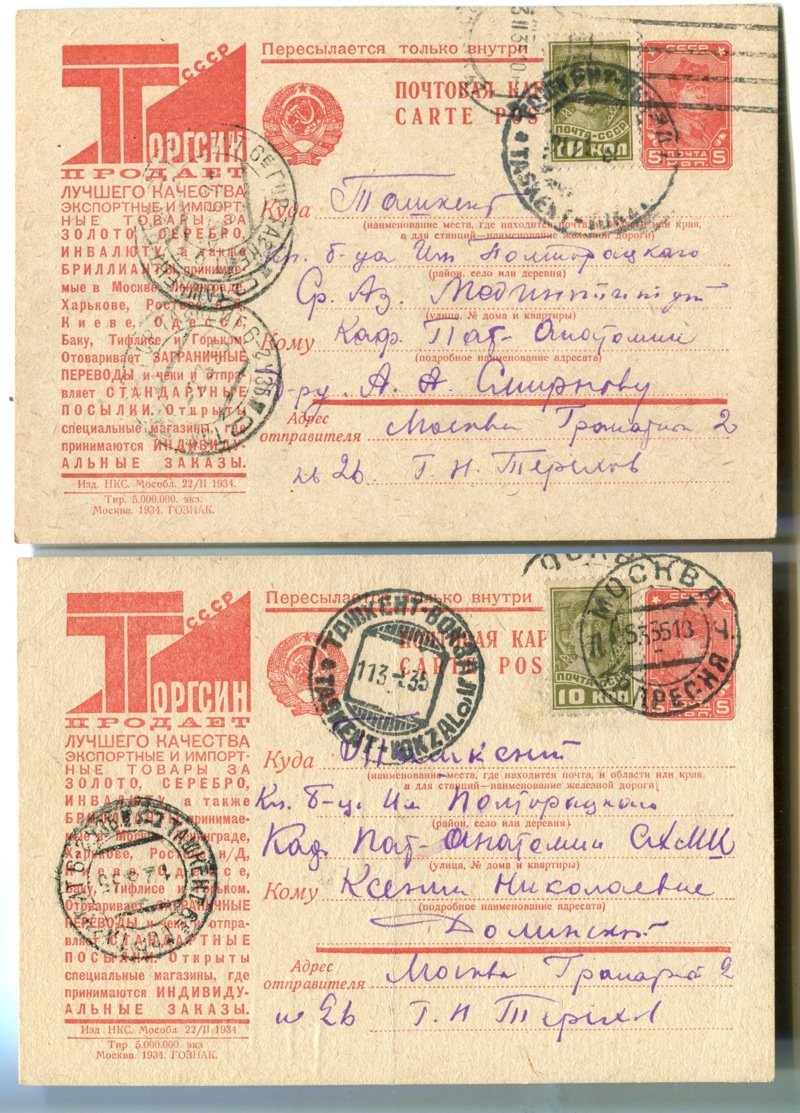 СССР
ТОРГСИН
ПРОДАЕТ
ЛУЧШЕГО КАЧЕСТВА
ЭКСПОРТНЫЕ И ИМПОРТ-
НЫЕ ТОВАРЫ ЗА
ЗОЛОТО, СЕРЕБРО,
ИНВАЛЮТУ, а также
БРИЛЛИАНТЫ принимае-
мые в Москве, Ленинграде,
Харькове, Ростове н/Д,
Киеве, Одессе,
Баку, Тифлисе и Горьком.
Отоваривает ЗАГРАНИЧНЫЕ
ПЕРЕВОДЫ и чеки и отпра-
вляет СТАНДАРТНЫЕ
ПОСЫЛКИ. Открыты
специальные магазины, где
принимаются ИНДИВИДУ-
АЛЬНЫЕ ЗАКАЗЫ.
Изд. НКС. Мособл. 22/II 1934.
Тир. 5.000.000. экз.
Москва. 1934. ГОЗНАК.
Пересылается только внутри
ПОЧТОВАЯ КАР
CARTE POS
ПОЧТА-СССР
10 КОП
СССР
ПОЧТА
5 КОП. 5
TASKENT-VOKZAL
Куда Ташкент
(наименование места, где находится почта, и области или края,
а для станций—наименование железной дороги)
Кл. б-ца Им. Полторацкого
(район, село или деревня)
Ср. Аз. Мединститут
(улица, № дома и квартиры)
Кому Каф. Пат-Анатомии
(подробное наименование адресата)
Д-ру. А. А. Смирнову
Адрес
отправителя Москва 2
кв 2б Г. Н. Терехов
СССР
ТОРГСИН
ПРОДАЕТ
ЛУЧШЕГО КАЧЕСТВА
ЭКСПОРТНЫЕ И ИМПОРТ-
НЫЕ ТОВАРЫ ЗА
ЗОЛОТО, СЕРЕБРО,
ИНВАЛЮТУ, а также
БРИЛЛИАНТЫ принимае-
мые в Москве, Ленинграде,
Харькове, Ростове н/Д,
Киеве, Одессе,
Баку, Тифлисе и Горьком.
Отоваривает ЗАГРАНИЧНЫЕ
ПЕРЕВОДЫ и чеки и отпра-
вляет СТАНДАРТНЫЕ
ПОСЫЛКИ. Открыты
специальные магазины, где
принимаются ИНДИВИДУ-
АЛЬНЫЕ ЗАКАЗЫ.
Изд. НКС. Мособл 22/II 1934
Тир 5.000.000. экз
Москва. 1934. ГОЗНАК.
Пересылается только внутри
ПОЧТОВАЯ КАР
CARTE POS
ТАШКЕНТ-ВОКЗАЛ
113 35
TASKENT-VOKZAL
10 КОП
МОСКВА
ПРЕСНЯ
5 КОП. 5
Куда Ташкент
(наименование места, где находится почта, и области или края,
а для станций—наименование железной дороги)
Кл. Б-ца Им Полторацкого
(район, село или деревня)
Каф Пат-Анатомии САМИ
(улица, № дома и квартиры)
Кому Ксении Николаевне
(подробное наименование адресата)
Долинской
Адрес
отправителя Москва 2
2б Г. Н Терехов